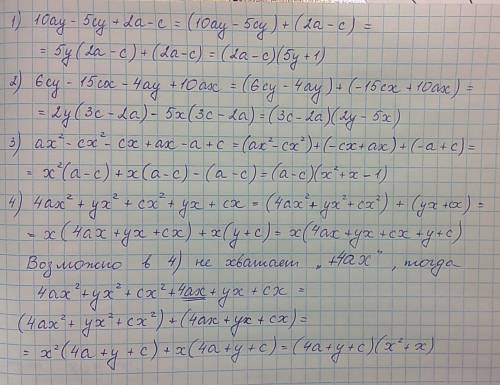 1) 10ay - 5cy + 2a - c = (10ay - 5cy) + (2a - c) =
= 5y(2a - c) + (2a - c) = (2a - c)(5y + 1)
2) 6cy - 15cx - 4ay + 10ax = (6cy - 4ay) + (-15cx + 10ax) =
= 2y(3c - 2a) - 5x(3c - 2a) = (3c - 2a)(2y - 5x)
3) ax² - cx² - cx + ax - a + c = (ax² - cx²) + (-cx + ax) + (-a + c) =
= x²(a - c) + x(a - c) - (a - c) = (a - c)(x² + x - 1)
4) 4ax² + yx² + cx² + yx + cx = (4ax² + yx² + cx²) + (yx + cx) =
= x(4ax + yx + cx) + x(y + c) = x(4ax + yx + cx + y + c)
Возможно в 4) не хватает „+4ax", тогда
4ax² + yx² + cx² + 4ax + yx + cx =
(4ax² + yx² + cx²) + (4ax + yx + cx) =
= x²(4a + y + c) + x(4a + y + c) = (4a + y + c)(x² + x)